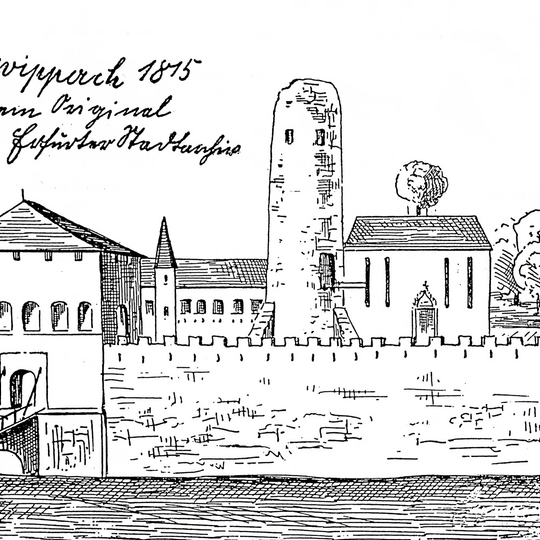 vippach 1815
Original
Erfurter Stadtarchiv